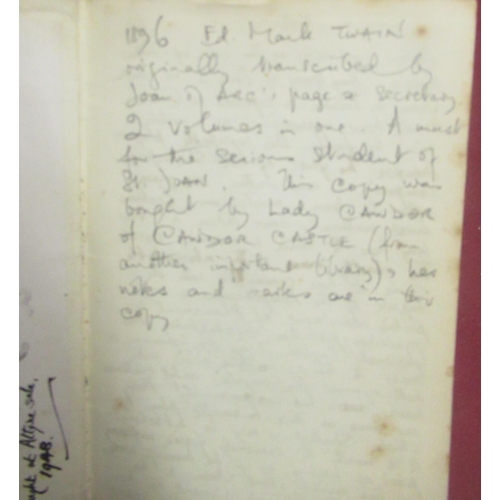 1896 Ed Mark TWAIN
originally transcribed by
Joan of ARC's page & secretary.
2 volumes in one. A must
for the serious student of
St JOAN. This copy was
bought by Lady CAWDOR
of CAWDOR CASTLE (from
another important library) & her
notes and are in this
copy
at Altyre sale,
1948.